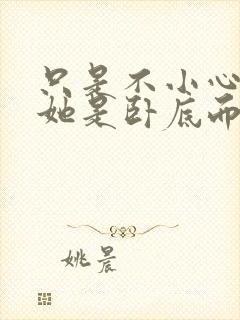 只是不小心
她是卧底而
姚晨